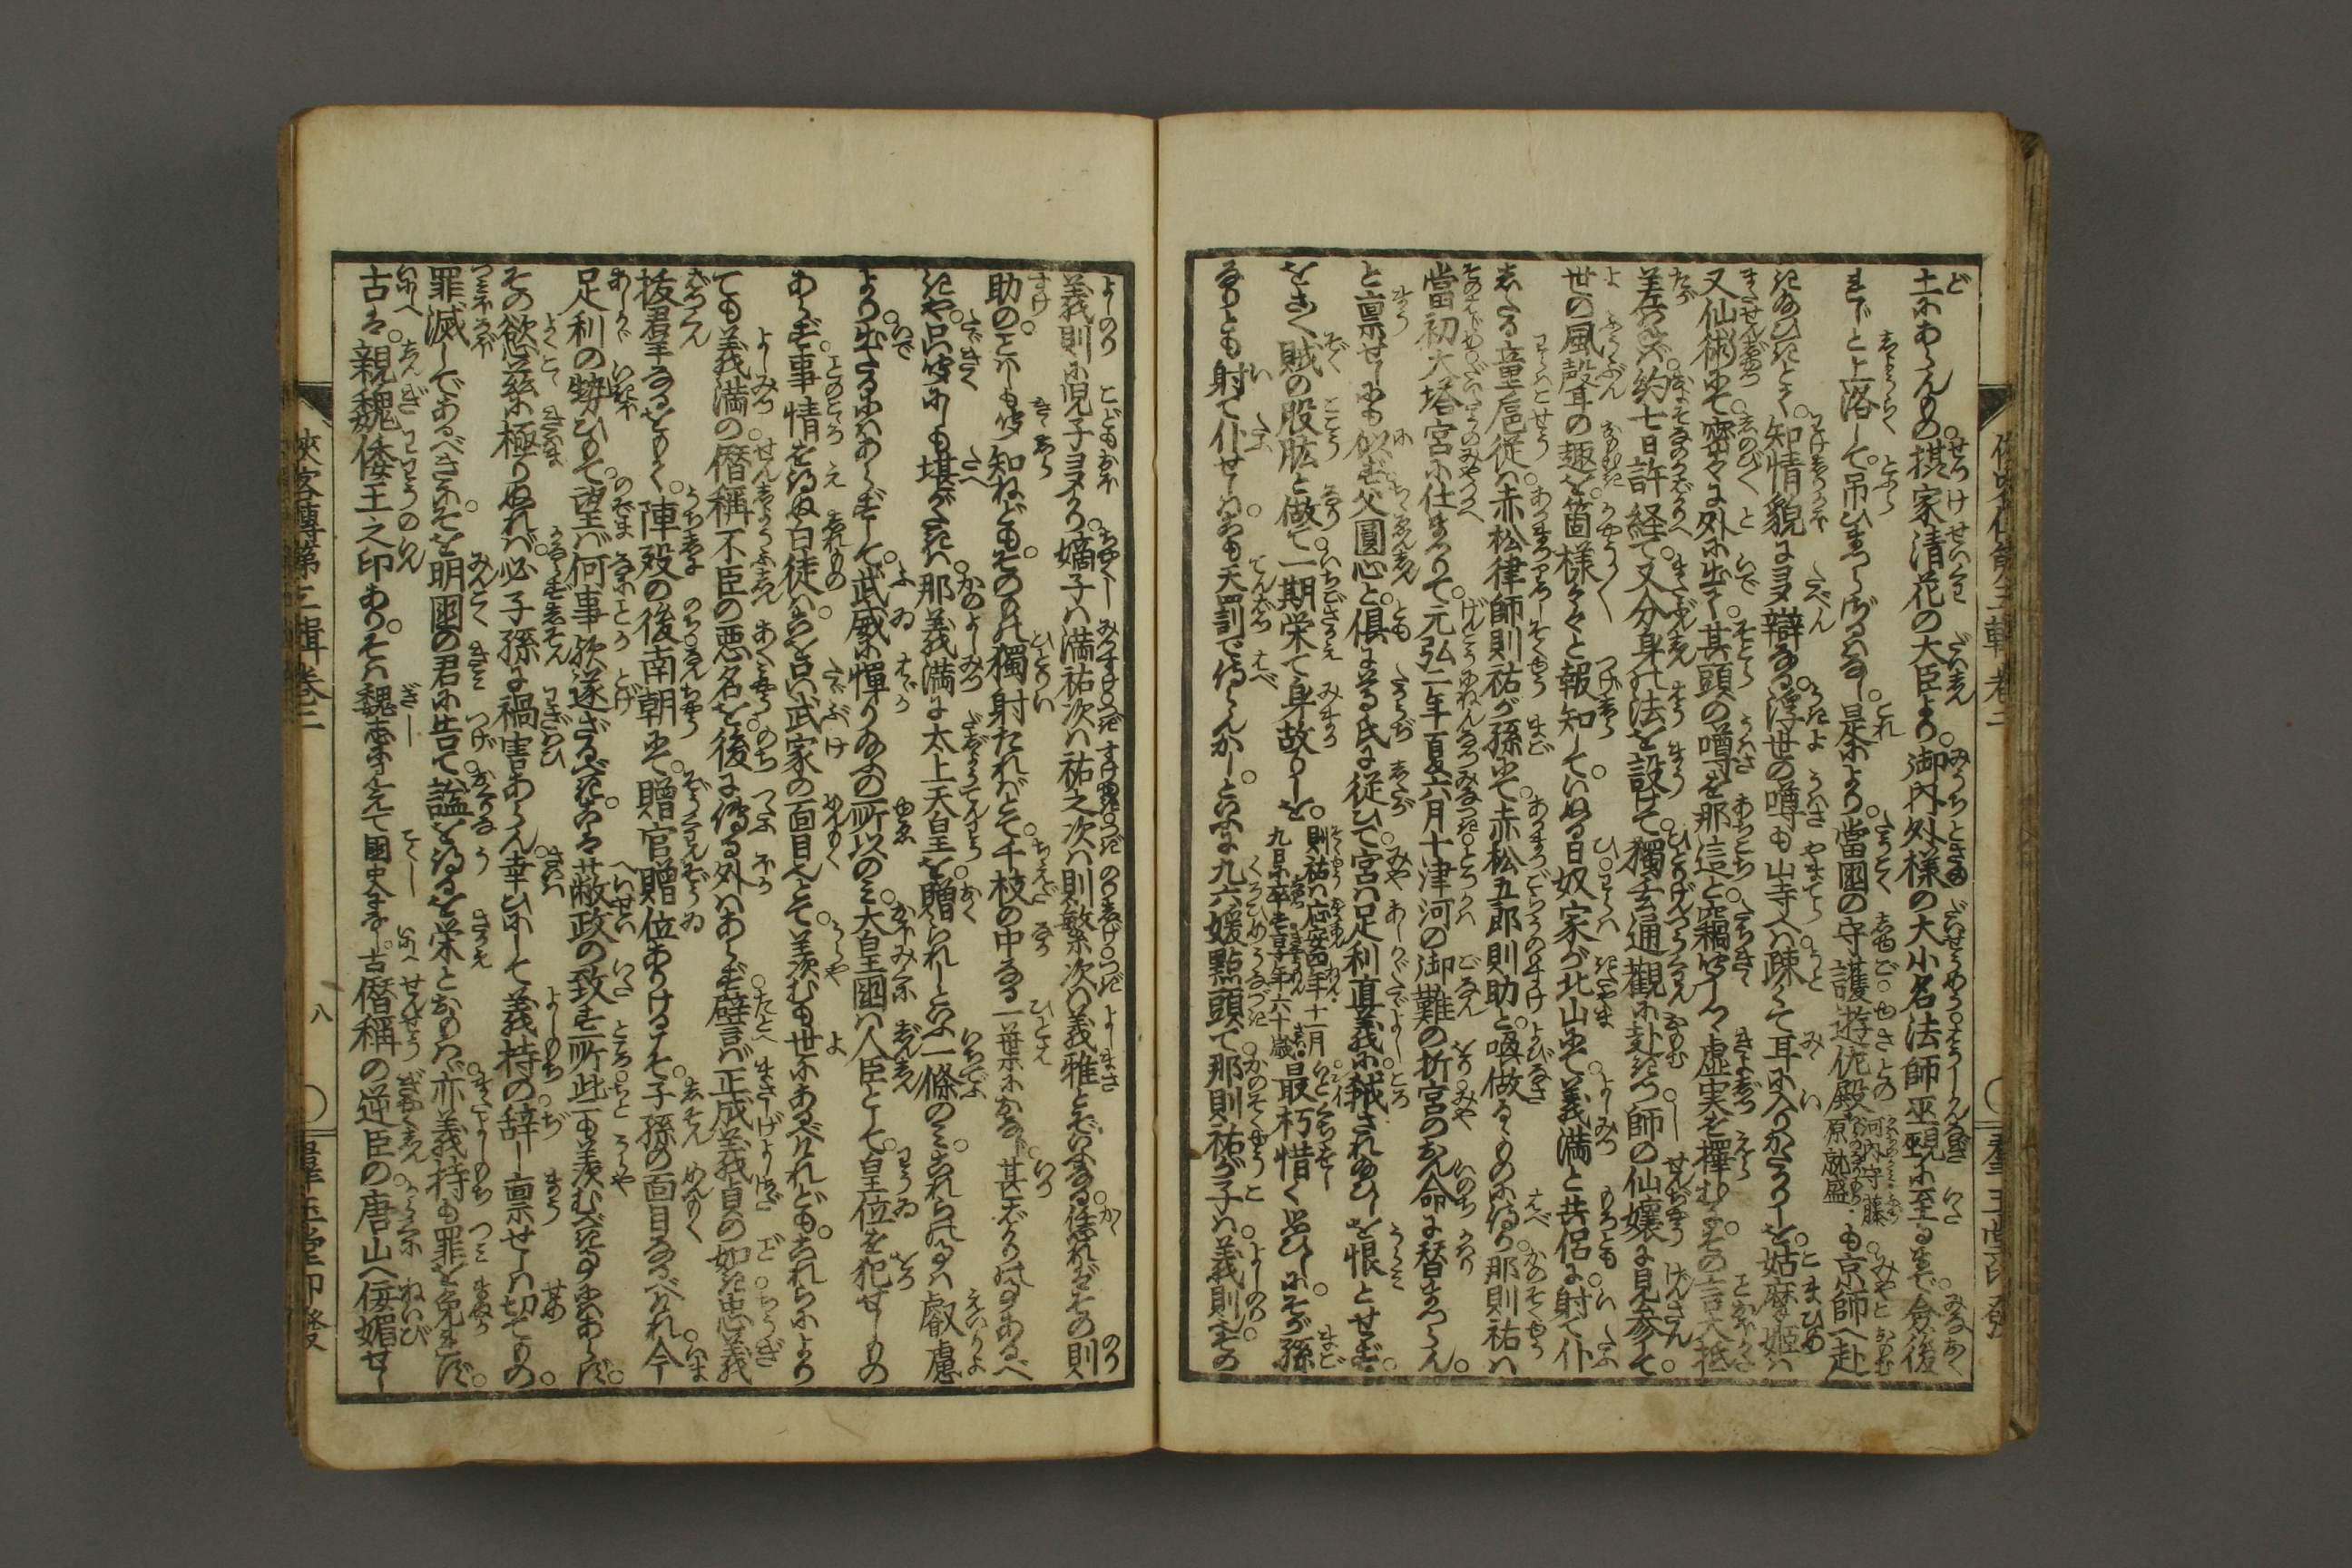 土にあらんもの。摂家清花の大臣より。御内外様の大小名法師巫覡に至るまで。僉後
れじと上洛して。吊ひまつらざるはなし。是により。當國の守護遊佐殿河内守藤原就盛も。京師へ赴
きぬひきとぞ。知情貌によく辯ずる。浮世の噂も山寺へは疎くて耳に入りがたかりしを。姑摩姫は
又仙術にて密々に外に出て。其頭の噂を那這と竊聞つゝ虚実を擇むに。その言大抵
差はず。約七日許経て。又分身の法を設けて。獨去通觀に赴きつ師の仙嬢に見参して。
世の風聲の趣を。箇様々々と報知して。いぬる日奴家が北山にて。義満と共侶に射て仆
したる童扈従は。赤松律師則祐が孫にて。赤松五郎則助と。喚做るゝものに侍り。那則祐は
當初大塔宮に仕まつりて。元弘二年夏六月十津河の御難の折宮のおん命に替まつらん
と稟せしにも似ず。父圓心と。倶に尊氏に従ひて。宮は足利直義に弑され給ひしを恨とせず。
をさ〳〵賊の股肱と做て。一期栄て身故りしを。則祐は應安四年十一月九日に卒す享年六十歳最朽惜く思ひしに。そが孫
なりとも射て仆せしは。おもふに天罰で侍らんかし。といふに九六媛點頭て。那則祐が子は義則。その
義則に児子多かり。嫡子は満祐次は祐之次は則繁次は義雅とぞいふなる。恁れどその則
助のことはしも。吾知ねども。そのもの獨射たればとて。千枝の中なる一葉にあなれば。甚ばかりの事あるべ
きや。只吾にしも堪がたきは。那義満に太上天皇を。贈られしといふ一條のみ。これらの事は叡慮
より出たるにはあらずして。武威に憚り給ふの所以のみ。大皇國は人臣として。皇位を犯せしもの
あらず。事情を得ぬ白徒は。さぞな武家の面目也とて。羨むも世にあるべけれども。これらにより
ても義満の僣稱不臣の悪名を。後に傳る外はあらず。譬言ば正成義貞の如き。忠義
抜群なるをもて。陣殁の後南朝にて。贈官贈位ありけるすら。子孫の面目なるべけれ。今
足利の勢ひもて。望ば何事歟。遂ざるべき。これらは敝政の致す所。些も羨むべき事にあらず。
その慾望茲に極りぬれば。必子孫に禍害あらん。幸ひにして義持の。辞し稟せしは切てもの
罪滅しであるべきに。そを明國の君に告て。謚を得るを栄とおもはゞ。亦義持も罪を免れず。
古は。親魏倭王之印あり。そは魏志に見えて國史になし。古僣稱の逆臣の。唐山へ佞媚せし
侠客傳第三輯巻二
八
群玉堂印發